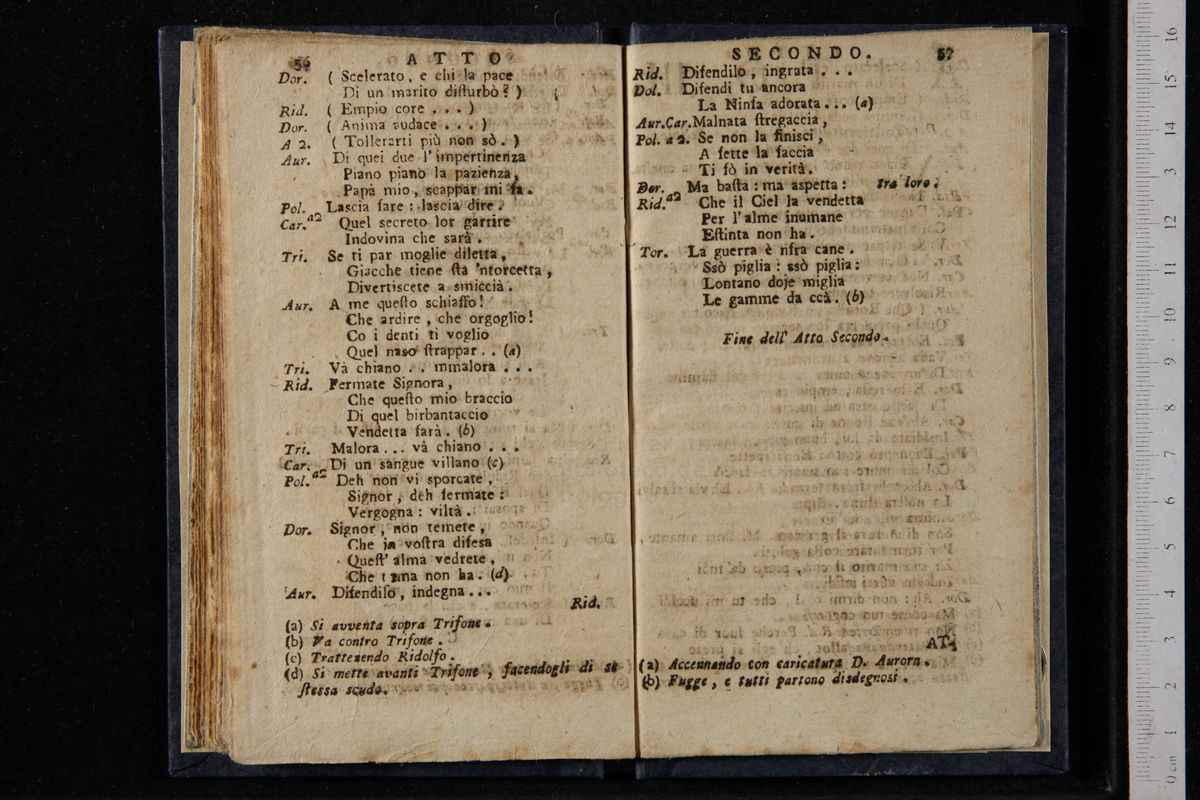 56 ATTO
Dor. ( Scelerato, e chi la pace
Di un marito diſturbò ? )
Rid. ( Empio core . . . )
Dor. ( Anima audace . . . )
A 2. ( Tollerarti più non sò. )
Aur. Di quei due l'impertinenza
Piano piano la pazienza,
Papà mio, scappar mi fa.
Pol. Lascia fare : lascia dire.
Car. a2 Quel secreto lor garrire
Indovina che sarà.
Tri. Se ti par moglie diletta,
Giacche tiene ſta 'ntorcetta,
Divertiscete a smiccià.
Aur. A me queſto schiaffo!
Che ardire, che orgoglio!
Co i denti ti voglio
Quel naso ſtrappar . . (a)
Tri. Và chiano . . mmalora . . .
Rid. Fermate Signora,
Che queſto mio braccio
Di quel birbantaccio
Vendetta farà. (b)
Tri. Malora... và chiano . . .
Car. Di un sangue villano (c)
Pol. a2 Deh non vi sporcate,
Signor, deh fermate :
Vergogna : viltà.
Dor. Signor, non temete,
Che in voſtra difesa
Queſt' alma vedrete,
Che tema non ha. (d)
Aur. Difendilo, indegna...
Rid.
(a) Si avventa sopra Trifone.
(b) Va contro Trifone.
(c) Trattenendo Ridolfo.
(d) Si mette avanti Trifone, facendogli di se
ſtessa scudo.
SECONDO. 57
Rid. Difendilo, ingrata . . .
Dol. Difendi tu ancora
La Ninfa adorata... (a)
Aur.Car. Malnata ſtregaccia,
Pol. a 2. Se non la finisci,
A fette la faccia
Ti fò in verità.
Dor. Ma baſta : ma aspetta : tra loro.
Rid. a2 Che il Ciel la vendetta
Per l'alme inumane
Eſtinta non ha.
Tor. La guerra è nfra cane.
Ssò piglia : ssò piglia :
Lontano doje miglia
Le gamme da ccà. (b)
Fine dell' Atto Secondo.
AT-
(a) Accennando con caricatura D. Aurora.
(b) Fugge, e tutti partono disdegnosi.
0 cm 1 2 3 4 5 6 7 8 9 10 11 12 13 14 15 16